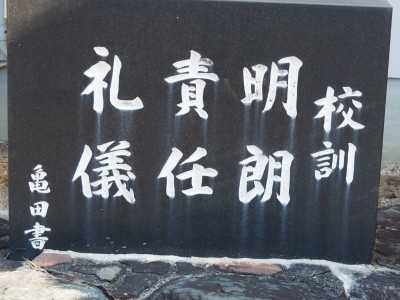 校訓
明朗
責任
礼儀
亀田書